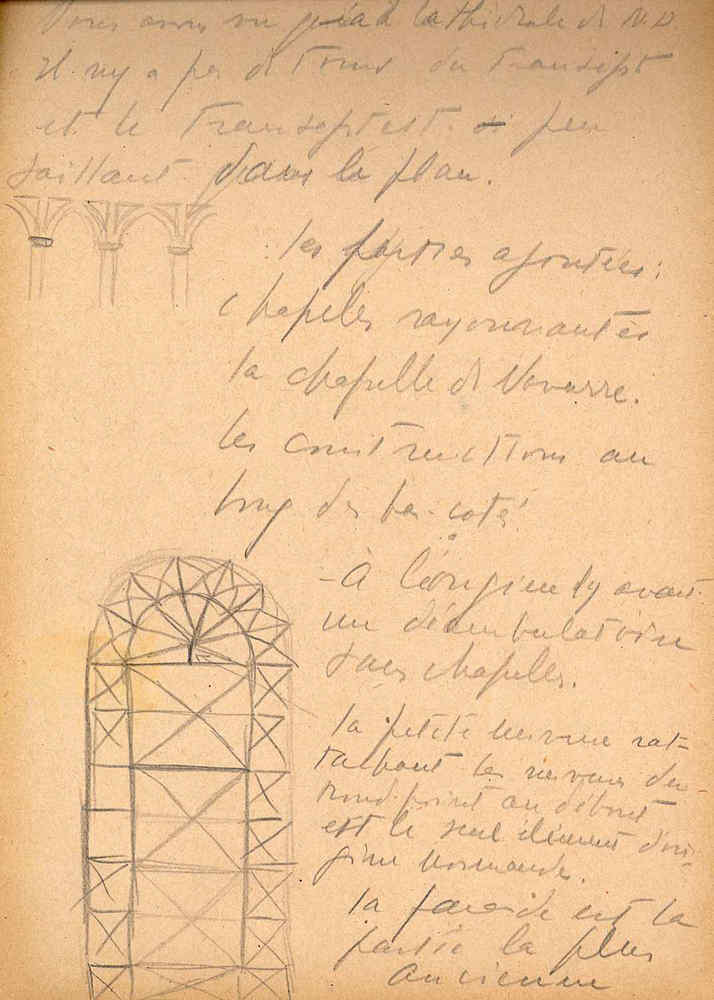 Nous avons vu      la cathédrale de N.D.
Il n'y a pas de tours du transept
et le transept est   peu
saillant dans le plan.
les parties ajoutées:
chapelles rayonnantes
la chapelle de Navarre.
les constructions au
long des bas-cotés
- À l'origine il y avait
un déambulatoire
sans chapelles.
la petite nervure rat-
tachant les nervures du
rond point au début
est le seul élément d'ori-
gine normande.
la façade est la
partie la plus
ancienne